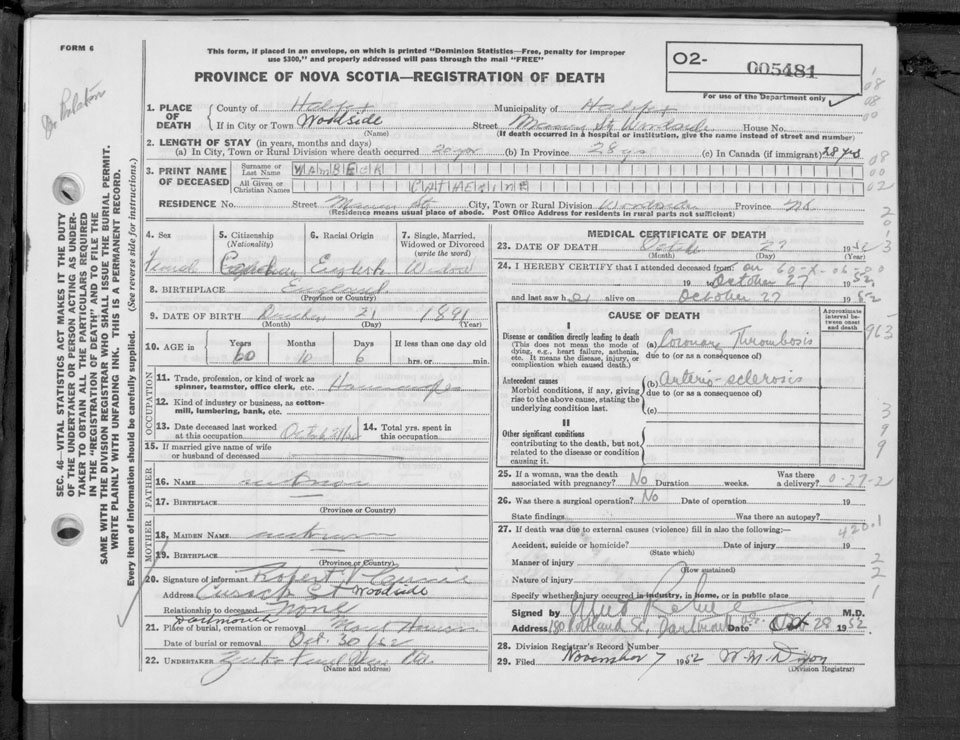 FORM 6
This form, if placed in an envelope, on which is printed "Dominion Statistics—Free, penalty for improper
use $300," and properly addressed will pass through the mail "FREE"
PROVINCE OF NOVA SCOTIA—REGISTRATION OF DEATH
O2- 005481
For use of the Department only
1. PLACE OF DEATH
County of Halifax Municipality of Halifax
If in City or Town Woodside Street House No.
(Name) (If death occurred in a hospital or institution, give the name instead of street and number)
2. LENGTH OF STAY (in years, months and days)
(a) In City, Town or Rural Division where death occurred (b) In Province 28 ys (c) In Canada (if immigrant) 28 yrs
3. PRINT NAME OF DECEASED
Surname or Last Name WAMBECK
All Given or Christian Names CATHERINE
RESIDENCE No. Street City, Town or Rural Division Woodside Province NS
(Residence means usual place of abode. Post Office Address for residents in rural parts not sufficient)
4. Sex Female
5. Citizenship (Nationality) Canadian
6. Racial Origin English
7. Single, Married, Widowed or Divorced (write the word) Widow
8. BIRTHPLACE England
(Province or Country)
9. DATE OF BIRTH 21 1891
(Month) (Day) (Year)
10. AGE Years 60 Months 10 Days 6 If less than one day old
hrs. or min.
OCCUPATION
11. Trade, profession, or kind of work as spinner, teamster, office clerk, etc.
12. Kind of industry or business, as cotton-mill, lumbering, bank, etc.
13. Date deceased last worked at this occupation
14. Total yrs. spent in this occupation
15. If married give name of wife or husband of deceased
FATHER
16. NAME unknown
17. BIRTHPLACE —
(Province or Country)
MOTHER
18. MAIDEN NAME unknown
19. BIRTHPLACE —
(Province or Country)
20. Signature of informant Robert
Address St Woodside
Relationship to deceased None
21. Place of burial, cremation or removal Dartmouth
Date of burial or removal Oct. 30/52
22. UNDERTAKER
(Name and address)
MEDICAL CERTIFICATE OF DEATH
23. DATE OF DEATH 27 19
(Month) (Day) (Year)
24. I HEREBY CERTIFY that I attended deceased from: on
19 to October 27 1952
and last saw her alive on October 27 1952
CAUSE OF DEATH
Approximate interval between onset and death
I
Disease or condition directly leading to death
(This does not mean the mode of dying, e.g., heart failure, asthenia, etc. It means the disease, injury, or complication which caused death.)
(a) Coronary Thrombosis
due to (or as a consequence of)
Antecedent causes
Morbid conditions, if any, giving rise to the above cause, stating the underlying condition last.
(b) Arterio-sclerosis
due to (or as a consequence of)
(c)
II
Other significant conditions
contributing to the death, but not related to the disease or condition causing it.
25. If a woman, was the death associated with pregnancy? No Duration weeks. Was there a delivery?
26. Was there a surgical operation? No Date of operation 19
State findings Was there an autopsy?
27. If death was due to external causes (violence) fill in also the following:—
Accident, suicide or homicide? Date of injury 19
(State which)
Manner of injury
(How sustained)
Nature of injury
Specify whether injury occurred in industry, in home, or in public place
Signed by M.D.
Address 180 Portland St, Dartmouth Date Oct 28 1952
28. Division Registrar's Record Number
29. Filed November 7 1952
(Division Registrar)
SEC. 46—VITAL STATISTICS ACT MAKES IT THE DUTY
OF THE UNDERTAKER OR PERSON ACTING AS UNDER-
TAKER TO OBTAIN ALL THE PARTICULARS REQUIRED
IN THE "REGISTRATION OF DEATH" AND TO FILE THE
SAME WITH THE DIVISION REGISTRAR WHO SHALL ISSUE THE BURIAL PERMIT.
WRITE PLAINLY WITH UNFADING INK. THIS IS A PERMANENT RECORD.
Every item of information should be carefully supplied. (See reverse side for instructions.)